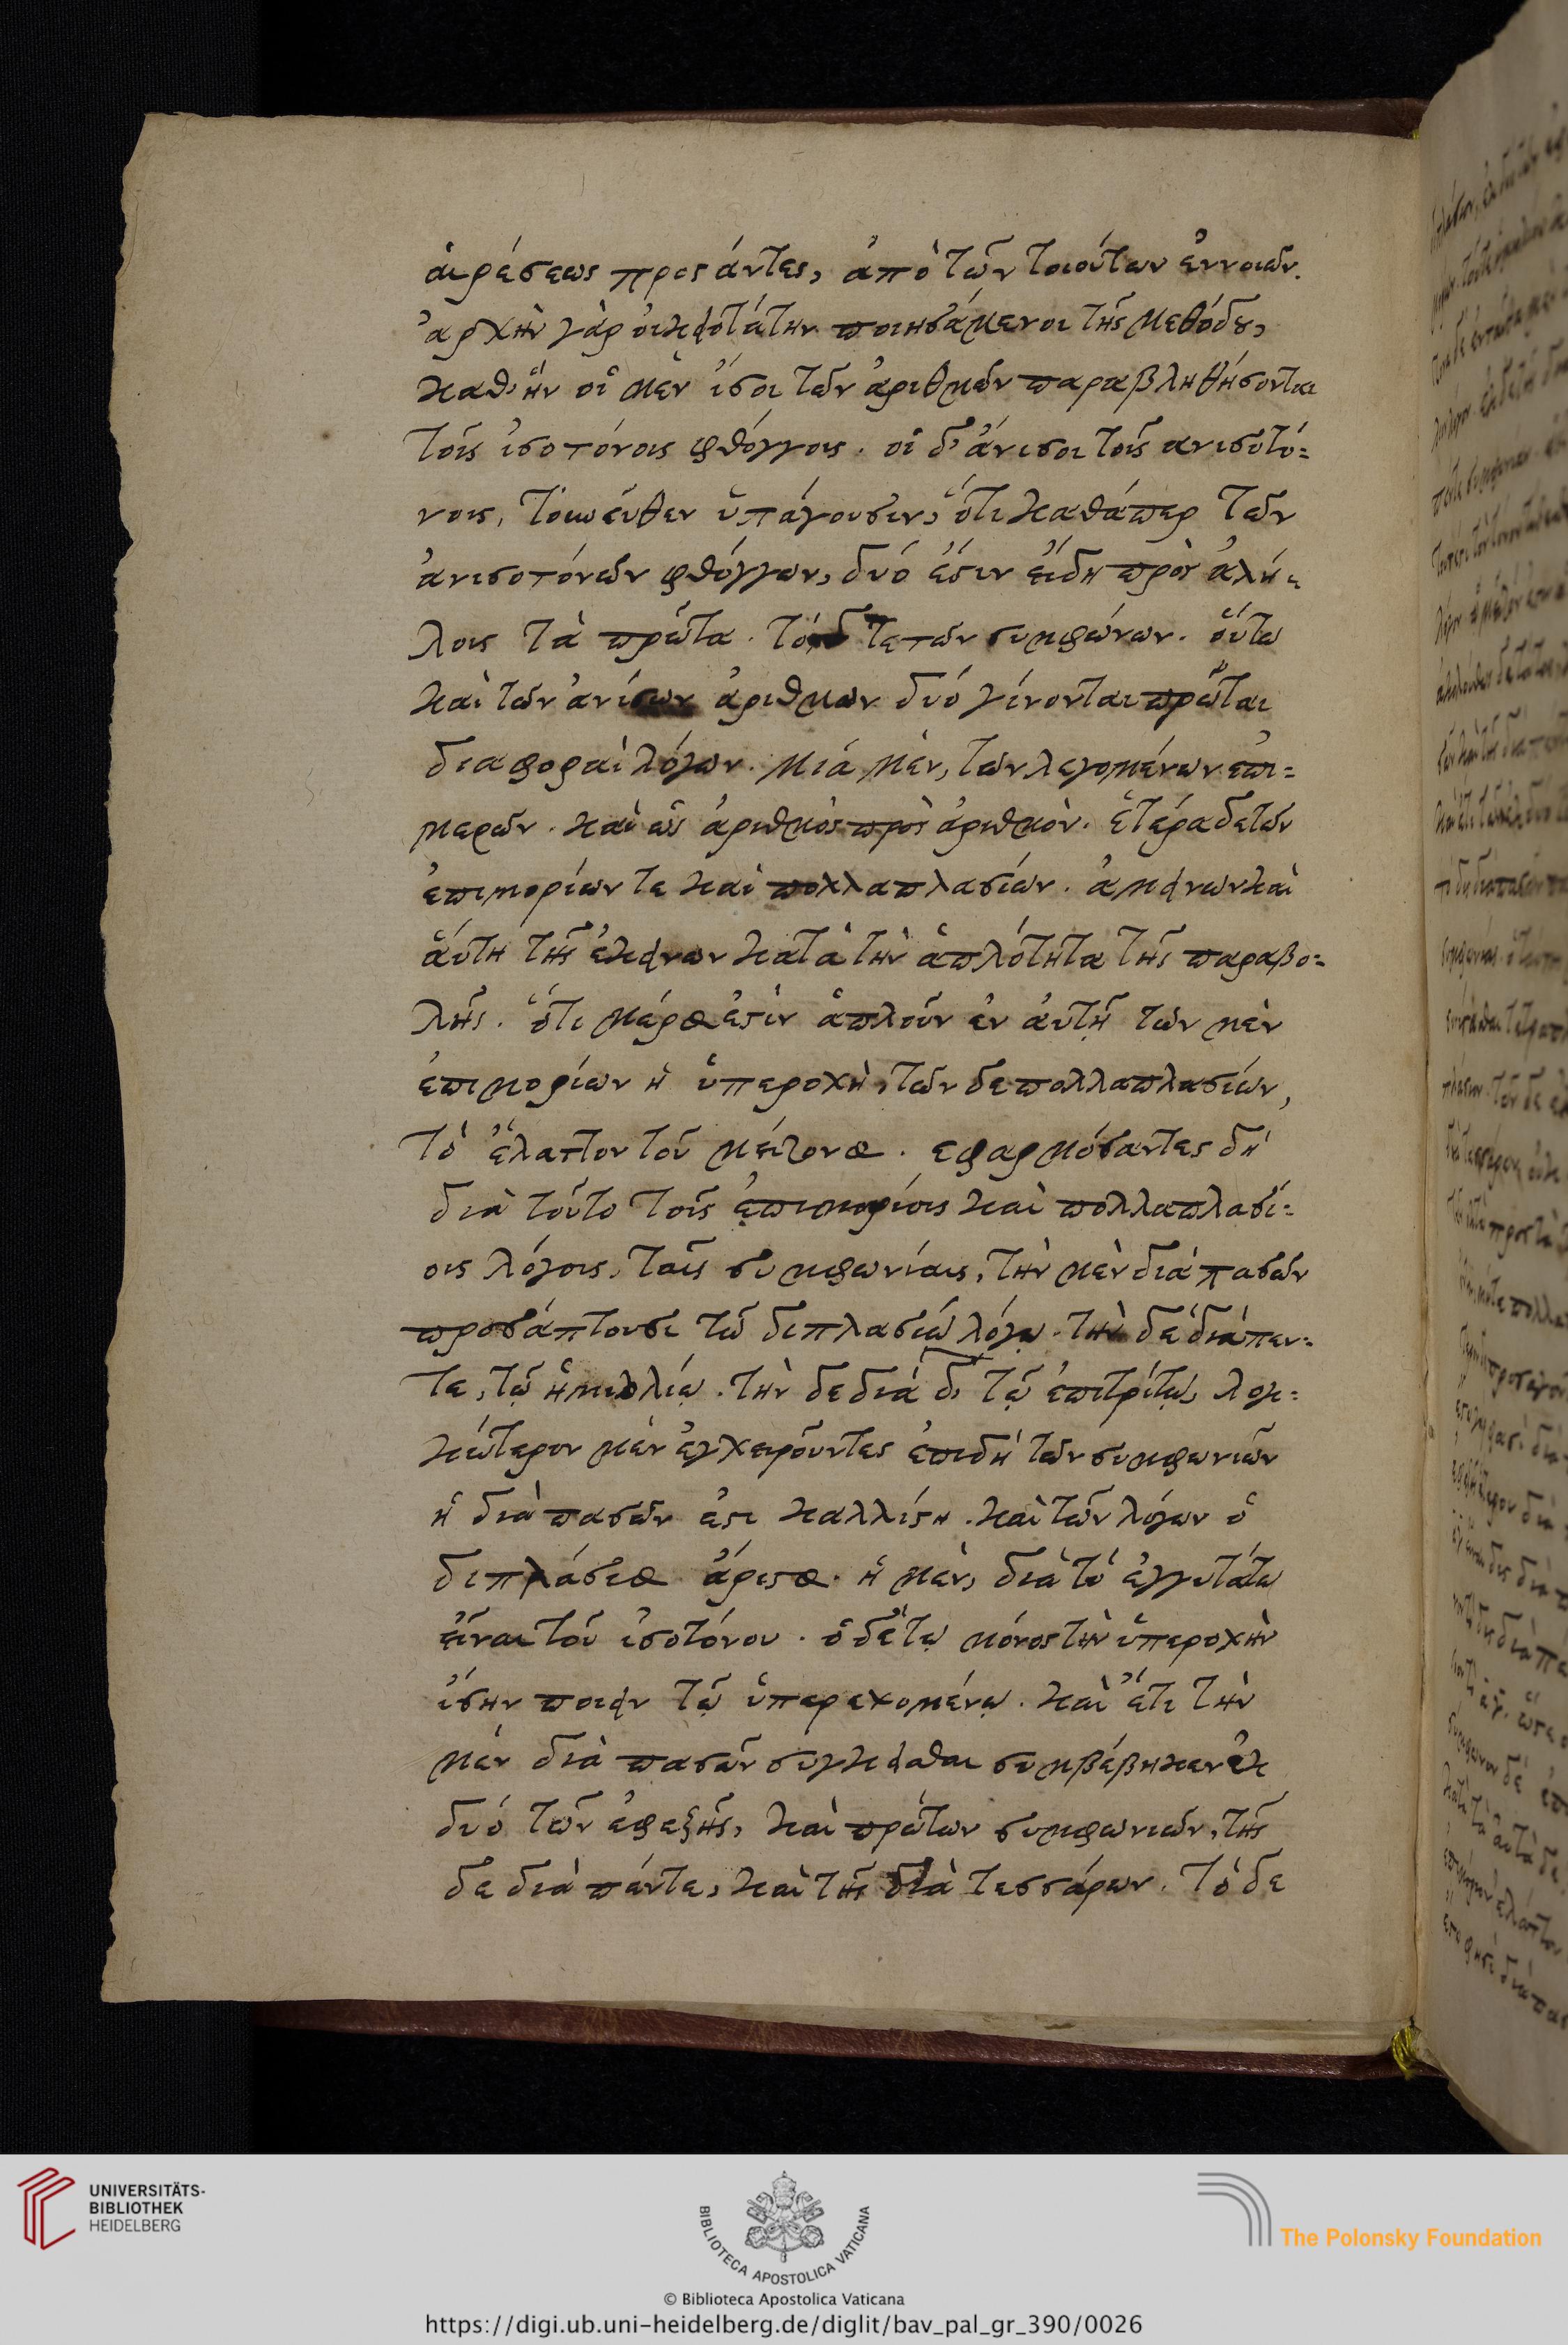 αἱρέσεως προς άντες, ἀπὸ τῶν τοιούτων ἐννοιῶν.
ἀρχὴν γὰρ οἰκειοτάτην ποιησάμενοι τῆς μεθόδου,
καθ' ἣν οἱ μὲν ἴσοι τῶν ἀριθμῶν παραβληθήσονται
τοῖς ἰσοτόνοις φθόγγοις. οἱ δ' ἄνισοι τοῖς ανισοτό=
νοις, ὑπάγουσιν, ὅτι καθάπερ τῶν
ἀνισοτόνων φθόγγων, δυό ἐστιν εἴδη πρὸς ἀλή=
λοις τὰ πρῶτα. τετων συμφώνων. οὕτω
καὶ τῶν ἀνίσων ἀριθμων δυό γίνονται πρῶται
διαφοραὶ λόγων. μιά μὲν, των λεγομένων ἐπι=
μερῶν. καὶ ὡς ἀριθμὸς πρὸς ἀριθμὸν. ἑτέρα δε τῶν
ἐπιμορίων τε καὶ πολλαπλασίων. ἀμείνων καὶ
ἅυτη τῆς ἐκείνων κατὰ τὴν ἁπλότητα τῆς παραβο=
λῆς. ὅτι μέρος ἐστὶν ἁπλοῦν ἐν ἀυτῇ τῶν μὲν
ἐπιμορίων ἡ ὑπεροχὴ, τῶν δε πολλαπλασίων,
τὸ ἔλαττον τοῦ μείζονος. εφαρμόσαντες δή
διὰ τοῦτο τοῖς ἐπιμορίοις καὶ πολλαπλασί=
οις λόγοις, ταῖς συμφωνίαις, τὴν μὲν διά πασῶν
προσάπτουσι τῷ διπλασίῳ λόγῳ. τὴν δὲ διάπεν=
τε, τῷ ἡμιολίῳ. τὴν δε διά δ, τῷ ἐπιτρίτῳ, λογι=
κώτερον μὲν ἐγχειροῦντες ἐπιδή τῶν συμφωνιῶν
ἡ διὰ πασῶν ἐστι καλλίστη. καὶ τῶν λόγων ὁ
διπλάσιος ἄριστος. ἡ μὲν, διὰ τὸ ἐγγυτάτω
εἶναι τοῦ ἰσοτόνου. ὁ δὲ τῳ μόνος τὴν ὑπεροχὴν
ἴσην ποιεῖν τῷ ὑπερεχομένῳ. καὶ ἔτι τὴν
μέν διὰ πασῶν συγκεῖσθαι συμβέβηκεν ἐκ
δυό τῶν ἐφεξῆς, καὶ πρώτων συμφωνιῶν, τῆς
δε διὰ πέντε, καὶ τῆς διὰ τεσσάρων. τὸ δε
UNIVERSITÄTS-
BIBLIOTHEK
HEIDELBERG
BIBLIOTECA APOSTOLICA VATICANA
The Polonsky Foundation
© Biblioteca Apostolica Vaticana
https://digi.ub.uni-heidelberg.de/diglit/bav_pal_gr_390/0026